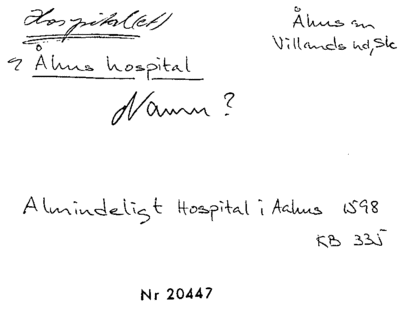 Hospital(et)
Åhus sn
Villands hd, Sk
? Åhus hospital
Namn?
Almindeligt Hospital i Aahus 1598
KB 335
Nr 20447